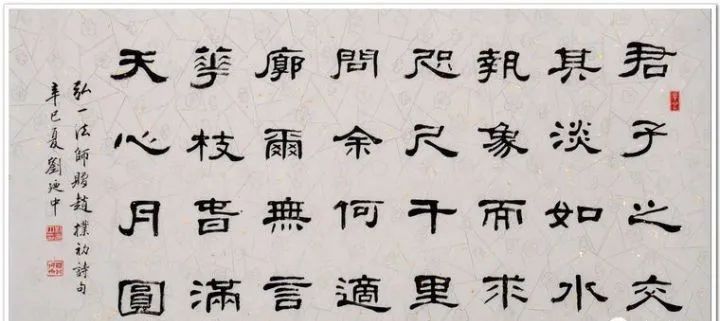 君子之交
其淡如水
執象而求
咫尺千里
問余何適
廓爾無言
華枝旾滿
天心月圓
弘一法師贈趙樸初詩句
辛巳夏劉迺中